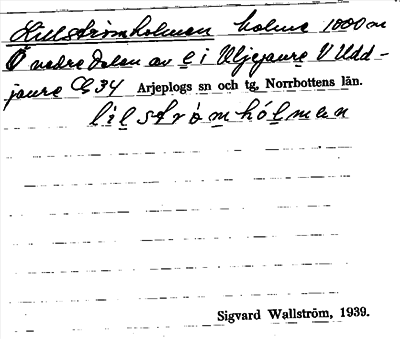 Lillströmholmen holme 1000 m
Ö nedre delen av e i Uljejaure V Udd-
jaure Cc 34 Arjeplogs sn och tg, Norrbottens län.
lilström hólmen
Sigvard Wallström, 1939.